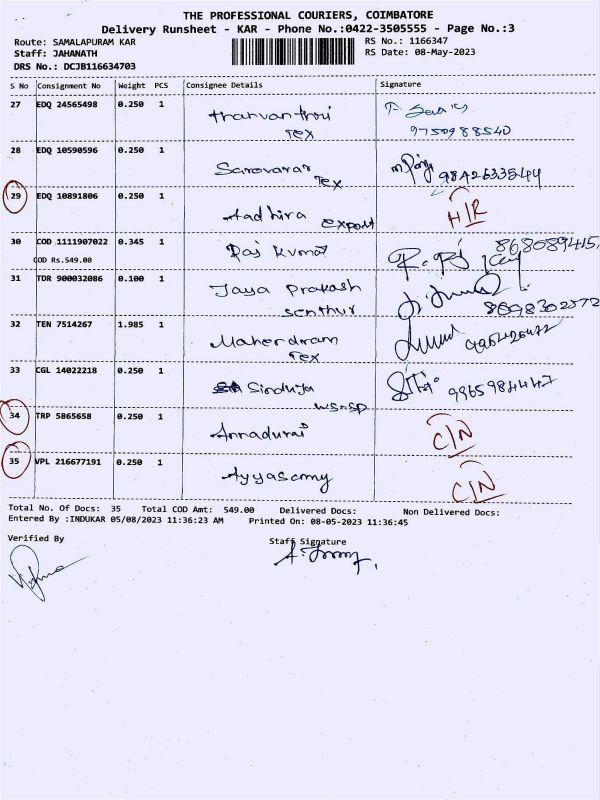 THE PROFESSIONAL COURIERS, COIMBATORE
Delivery Runsheet - KAR - Phone No.:0422-3505555 - Page No.:3
Route: SAMALAPURAM KAR RS No.: 1166347
Staff: JAHANATH RS Date: 08-May-2023
DRS No.: DCJB116634703
S No Consignment No Weight PCS Consignee Details Signature
27 EDQ 24565498 0.250 1 tharvanthri
Tex 9750988540
28 EDQ 10590596 0.250 1 Sarovarar
Tex 9842633544
29 EDQ 10891806 0.250 1 Aadhira
export H/R
30 COD 1111907022 0.345 1 Raj Kumar 868089415
COD Rs.549.00
31 TDR 900032086 0.100 1 Jaya Prakash
senthur
32 TEN 7514267 1.985 1 Mahendram
Tex
33 CGL 14022218 0.250 1 Sinduja 9965984447
34 TRP 5865658 0.250 1 Annadurai C/N
35 VPL 216677191 0.250 1 Ayyasamy C/N
Total No. Of Docs: 35 Total COD Amt: 549.00 Delivered Docs: Non Delivered Docs:
Entered By :INDUKAR 05/08/2023 11:36:23 AM Printed On: 08-05-2023 11:36:45
Verified By Staff Signature